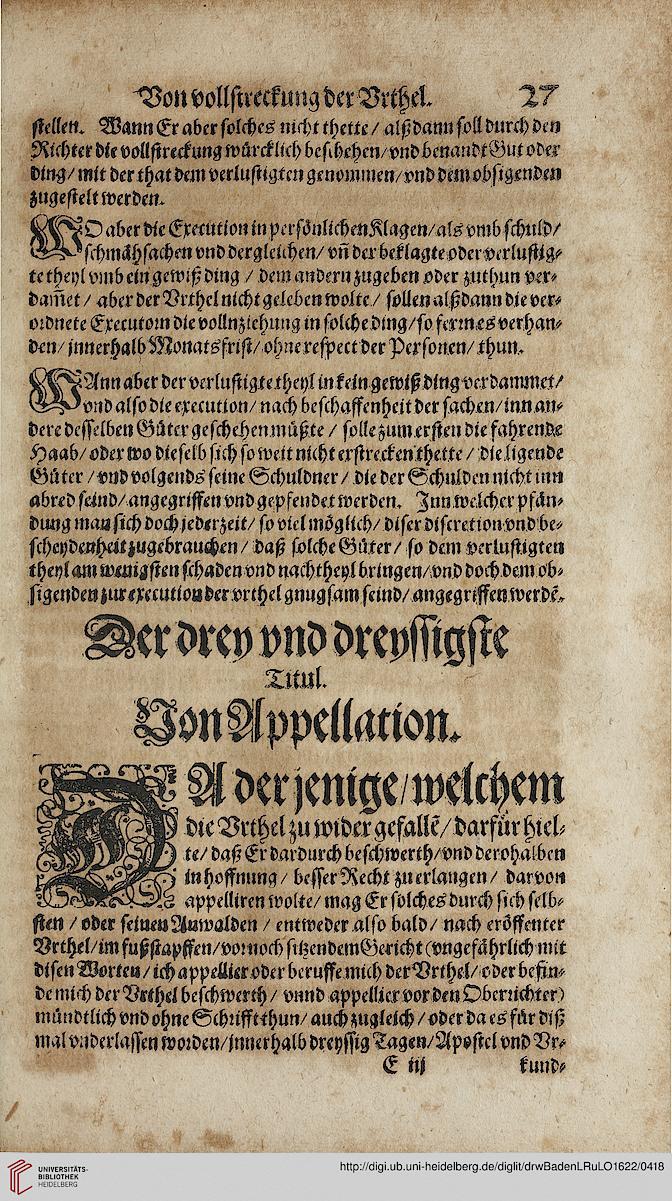 Von vollstreckung der Vrthel. 27
stellen. Wann Er aber solches nicht thette / alßdann soll durch den
Richter die vollstreckung würcklich beschehen/ vnd benandt Gut oder
ding/ mit der that dem verlustigten genommen/ vnd dem obsigenden
zugestelt werden.
WO aber die Execution in persönlichen Klagen/ als vmb schuld/
schmähsachen vnd dergleichen/ vñ der beklagte oder verlustig⸗
te theyl vmb ein gewiß ding / dem andern zugeben oder zuthun ver⸗
dam̃et / aber der Vrthel nicht geleben wolte / sollen alßdann die ver⸗
ordnete Executorn die vollnziehung in solche ding/ so fern es verhan⸗
den/ jnnerhalb Monatsfrist/ ohne respect der Personen/ thun.
WAnn aber der verlustigte theyl in kein gewiß ding verdammet/
vnd also die execution/ nach beschaffenheit der sachen/ inn an⸗
dere desselben Güter geschehen müßte / solle zum ersten die fahrende
Haab/ oder wo dieselb sich so weit nicht erstrecken thette / die ligende
Güter / vnd volgends seine Schuldner / die der Schulden nicht inn
abred seind/ angegriffen vnd gepfendet werden. Inn welcher pfän⸗
dung man sich doch jederzeit/ so viel möglich/ diser discretion vnd be⸗
scheydenheit zugebrauchen / daß solche Güter / so dem verlustigten
theyl am wenigsten schaden vnd nachtheyl bringen/ vnd doch dem ob⸗
sigenden zur execution der vrthel gnugsam seind/ angegriffen werdẽ.
Der drey vnd dreyssigste
Titul.
Von Appellation.
DA der jenige/ welchem
die Vrthel zu wider gefallẽ/ darfür hiel⸗
te/ daß Er dardurch beschwerth/ vnd derohalben
in hoffnung / besser Recht zu erlangen / darvon
appelliren wolte/ mag Er solches durch sich selb⸗
sten / oder seinen Anwalden / entweder also bald / nach eröffenter
Vrthel/ im fußstapffen/ vor noch sitzendem Gericht (vngefährlich mit
disen Worten / ich appellier oder beruffe mich der Vrthel/ oder befin⸗
de mich der Vrthel beschwerth / vnnd appellier vor den Oberrichter)
mündtlich vnd ohne Schrifft thun/ auch zugleich / oder da es für diß
mal vnderlassen worden/ jnnerhalb dreyssig Tagen/ Apostel vnd Vr⸗
E iij kund⸗
UNIVERSITÄTS-
BIBLIOTHEK
HEIDELBERG
http://digi.ub.uni-heidelberg.de/diglit/drwBadenLRuLO1622/0418